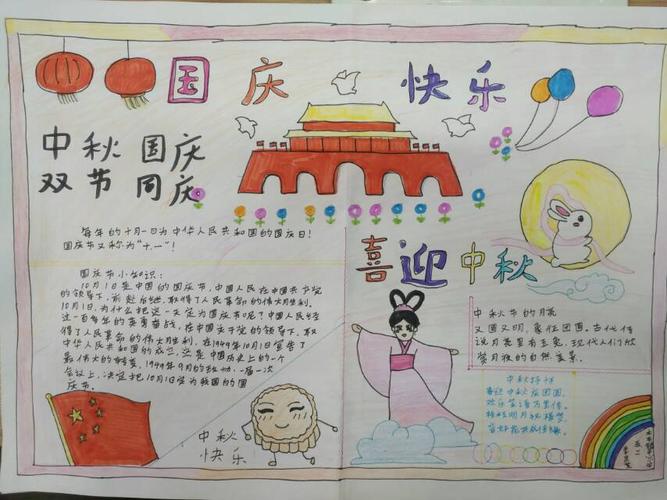 国庆 快乐
中秋 国庆
双节 同庆
每年的十月一日为中华人民共和国的国庆日!
国庆节又称为"十一"!
喜迎中秋
国庆节小知识:
10月1日是中国的国庆节,中国人民在中国共产党
的领导下,前赴后继,取得了人民革命的伟大胜利。
10月1日,为什么把这一天定为国庆节呢?中国人民经
过一百多年的英勇奋战,在中国共产党的领导下,取
得了人民革命的伟大胜利,在1949年10月1日宣告了
中华人民共和国的成立,这是中国历史上的一个
最伟大的转变,1949年9月的政协一届一次
会议上,决定把10月1日定为我国的国
庆节。
中秋节的月亮
又圆又明,象征团圆。古代传
说月亮里有玉兔,现代人们欣
赏月夜的自然
中秋
喜迎中秋团圆
欢乐
明月
中秋
快乐
五二